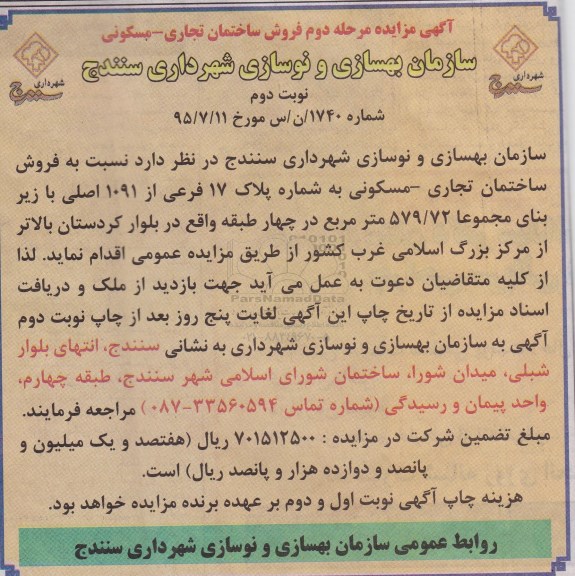 آگهی مزایده مرحله دوم فروش ساختمان تجاری-مسکونی
سازمان بهسازی و نوسازی شهرداری سنندج
شهرداری سنندج
شهرداری سنندج
نوبت دوم
شماره ۱۷۴۰/ن/س مورخ ۹۵/۷/۱۱
سازمان بهسازی و نوسازی شهرداری سنندج در نظر دارد نسبت به فروش
ساختمان تجاری -مسکونی به شماره پلاک ۱۷ فرعی از ۱۰۹۱ اصلی با زیر
بنای مجموعا ۵۷۹/۷۲ متر مربع در چهار طبقه واقع در بلوار کردستان بالاتر
از مرکز بزرگ اسلامی غرب کشور از طریق مزایده عمومی اقدام نماید. لذا
از کلیه متقاضیان دعوت به عمل می آید جهت بازدید از ملک و دریافت
اسناد مزایده از تاریخ چاپ این آگهی لغایت پنج روز بعد از چاپ نوبت دوم
آگهی به سازمان بهسازی و نوسازی شهرداری به نشانی سنندج، انتهای بلوار
شبلی، میدان شورا، ساختمان شورای اسلامی شهر سنندج، طبقه چهارم،
واحد پیمان و رسیدگی (شماره تماس ۳۳۵۶۰۵۹۴-۰۸۷) مراجعه فرمایند.
مبلغ تضمین شرکت در مزایده : ۷۰۱۵۱۲۵۰۰ ریال (هفتصد و یک میلیون و
پانصد و دوازده هزار و پانصد ریال) است.
هزینه چاپ آگهی نوبت اول و دوم بر عهده برنده مزایده خواهد بود.
روابط عمومی سازمان بهسازی و نوسازی شهرداری سنندج
ParsNamadData